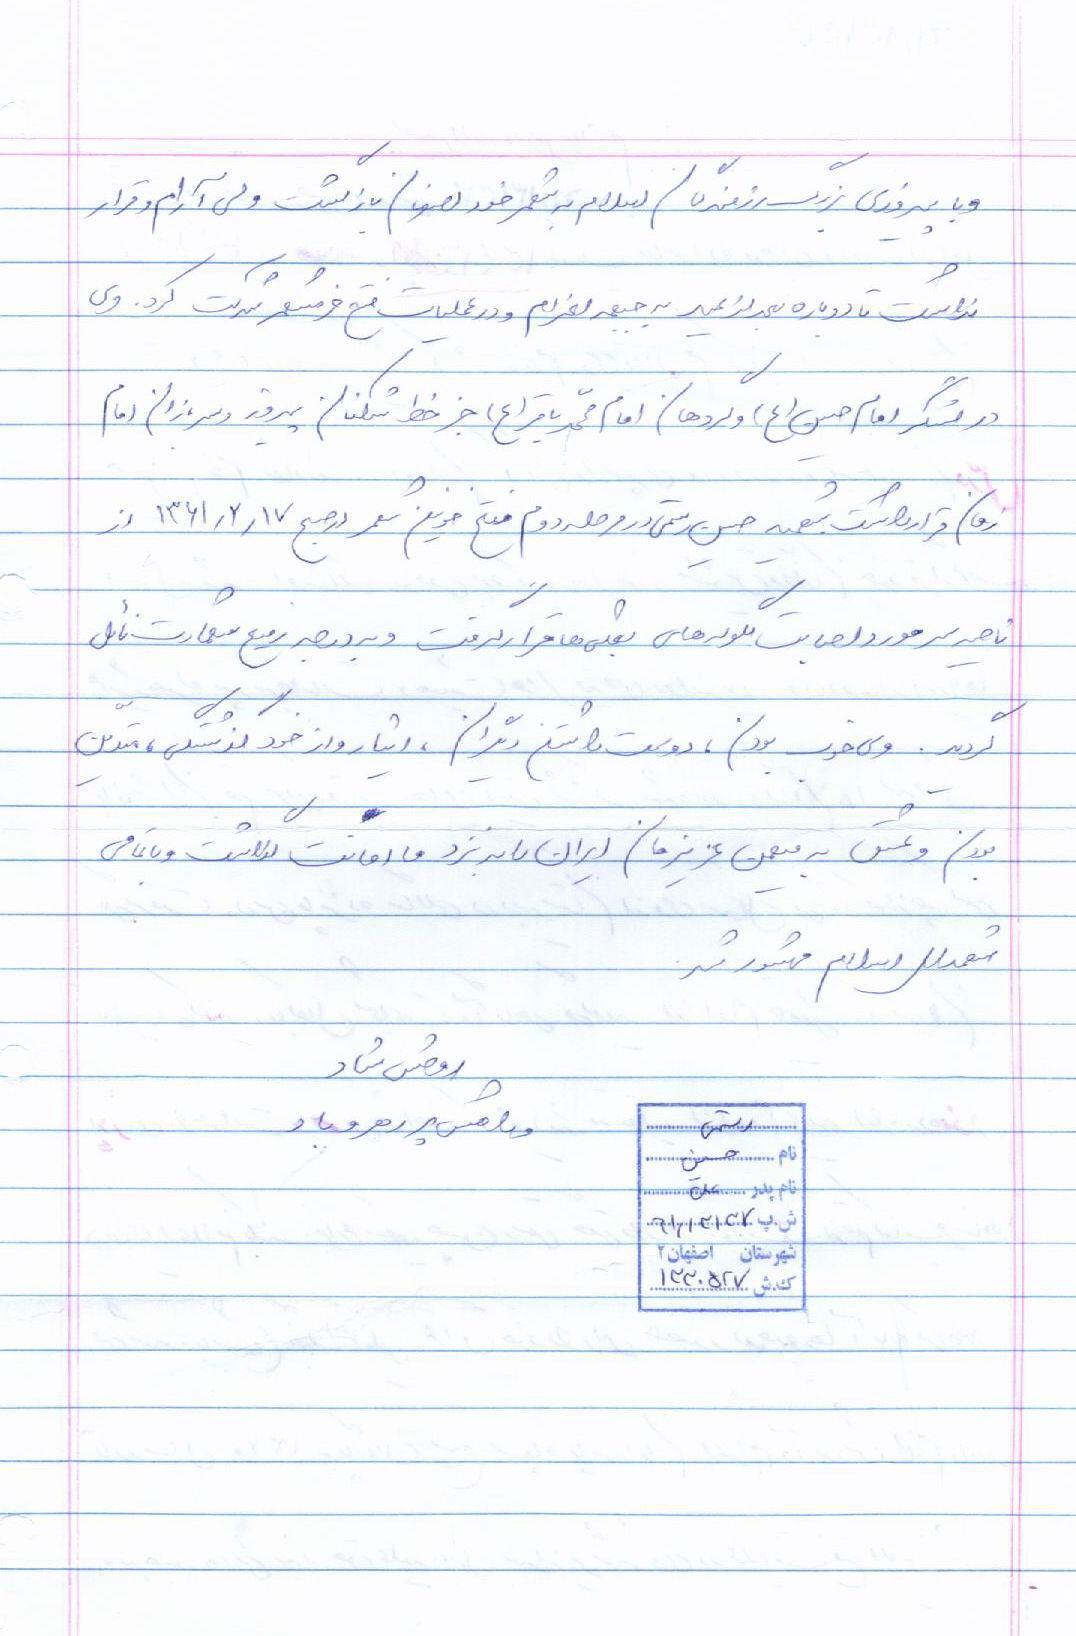 وبا پیروزی بزرگ رزمندگان اسلام به شهر خود اصفهان بازگشت ولی آرام و قرار
نداشت تا دوباره بعد از عید به جبهه اعزام و در عملیات فتح خرمشهر شرکت کرد. وی
در لشگر امام حسین (ع) و گردهان امام محمد باقر (ع) جز خط شکنان پیروز و سربازان امام
زمان قرار داشت شهید حسین رستمی در مرحله دوم فتح خونین شهر در صبح ۱۳۶۱/۲/۱۷ از
ناحیه سر مورد اصابت گلوله های بعثی ها قرار گرفت و به درجه رفیع شهادت نائل
گردید. وی خوب بودن، دوست داشتن دیگران، ایثار و از خود گذشتگی، متدین
بودن و عشق به میهن عزیزمان ایران را به نزد ما امانت گذاشت و با تمامی
شهدای اسلام محشور شد.
روحش شاد
و راهش پر رهرو باد
رستمی
نام حسین
نام پدر علی
ش.پ
شهرستان اصفهان ۲
ک.ش ۱۲۲۰۵۲۷